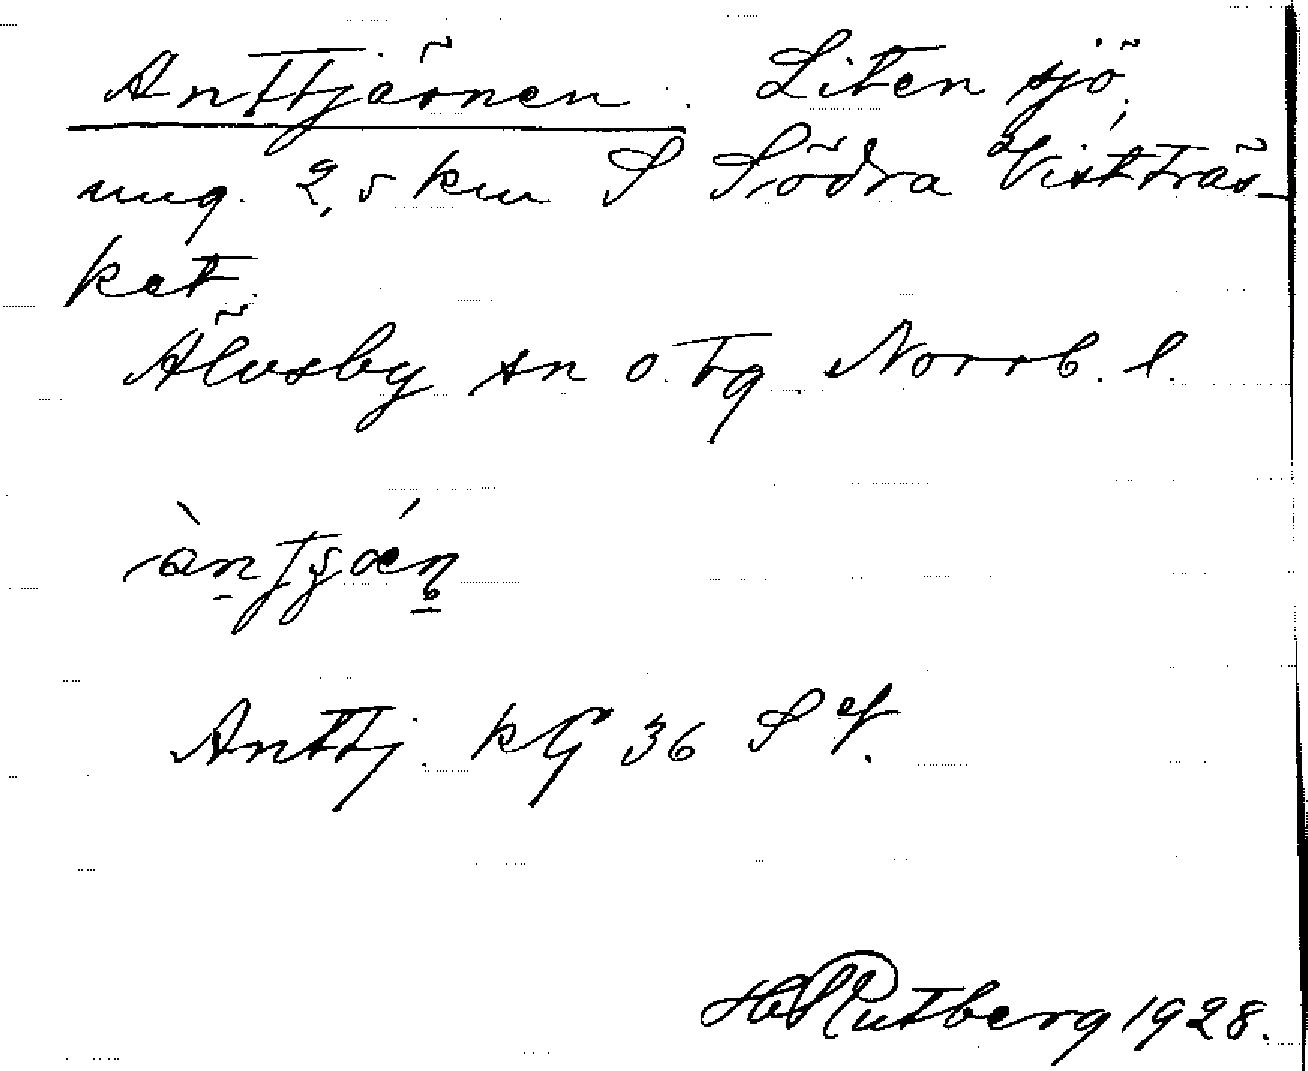 Anttjärnen. Liten sjö,
ung. 2,5 km S Södra Vistträs-
ket.
Älvsby sn o. tg. Norrb. l.
Anttj. kG 36 SV.
H Rutberg 1928.